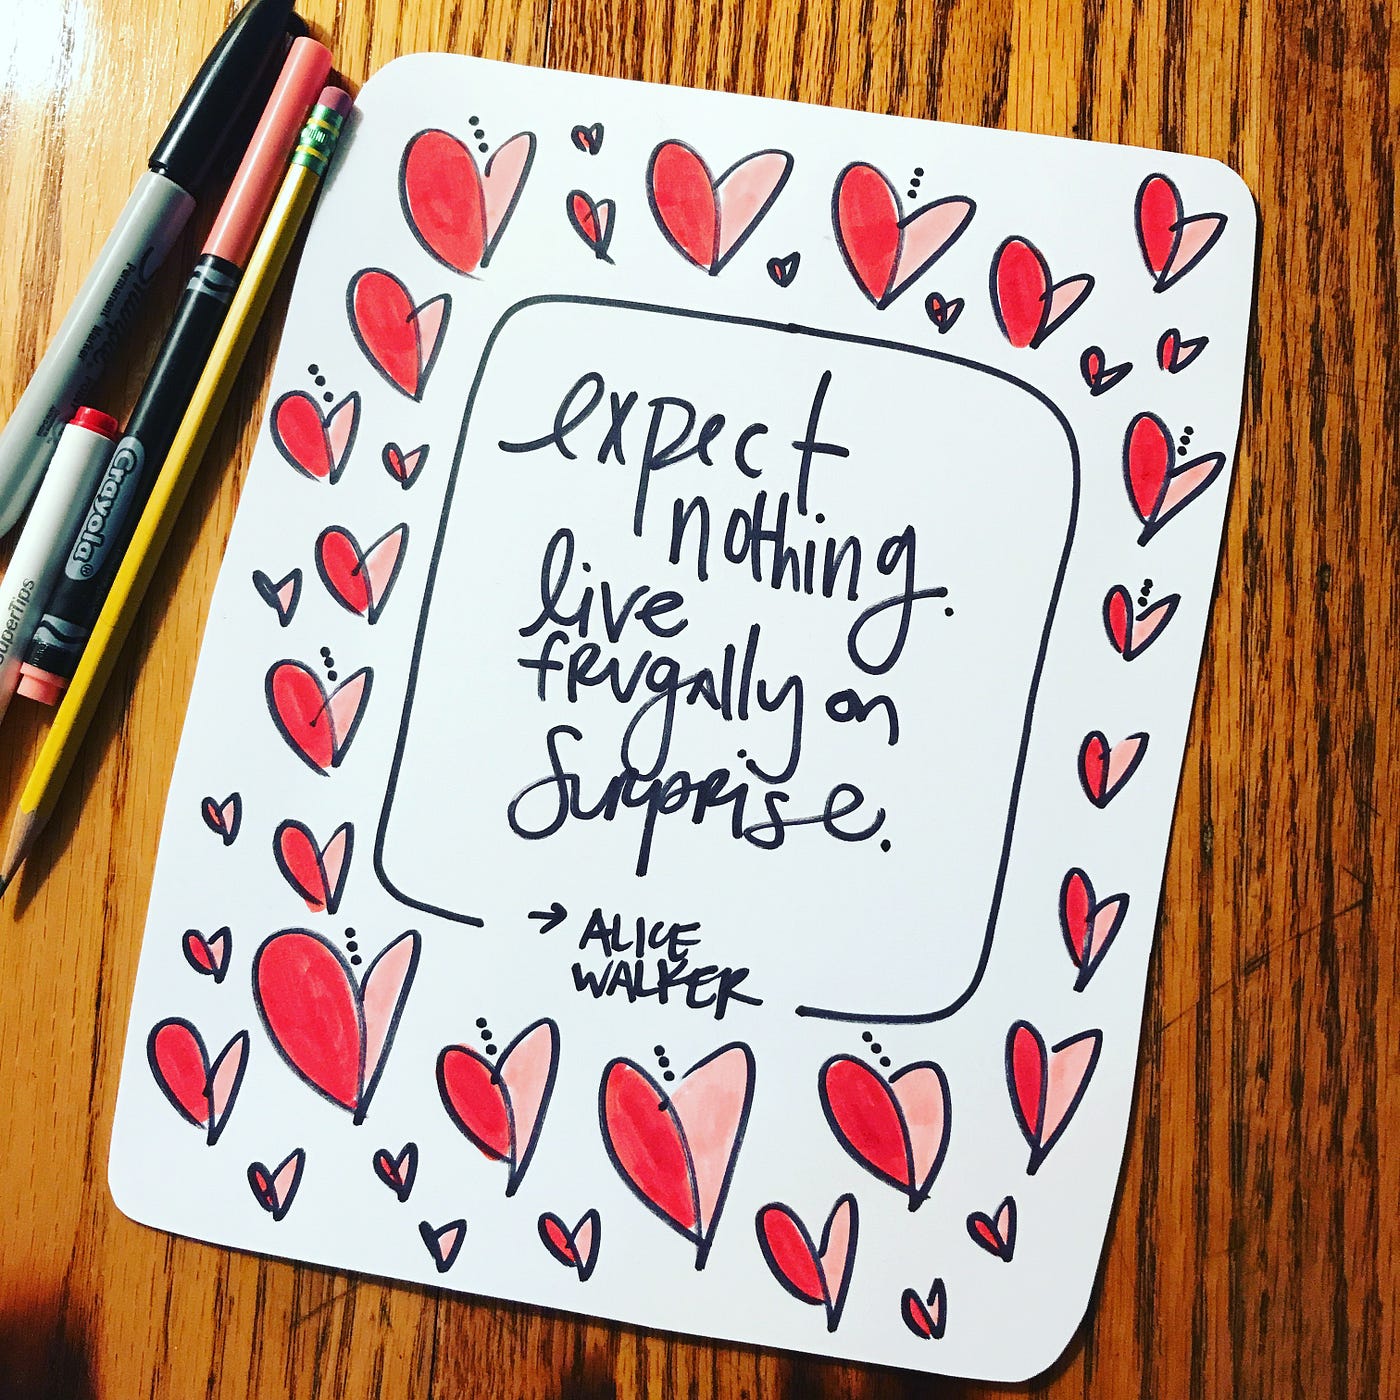 expect
nothing.
live
frugally on
surprise.
→ ALICE
WALKER
Permanent Marker
Crayola®
SuperTips